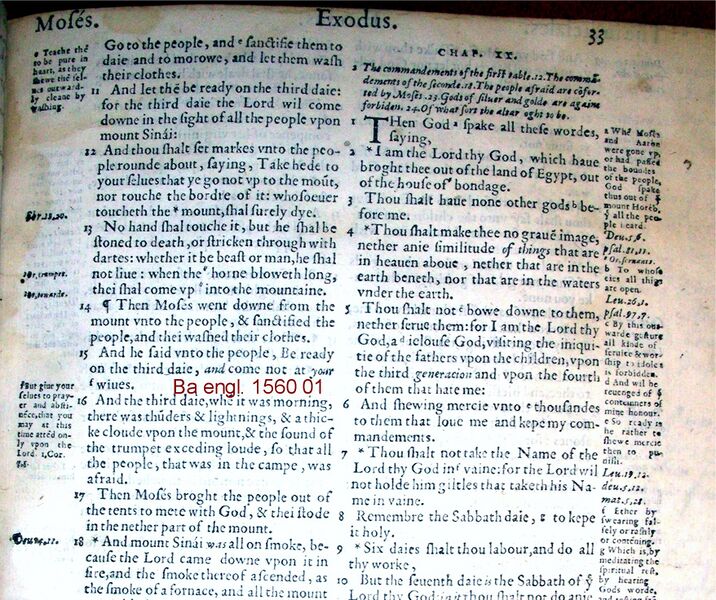 Mosés.
Exodus.
33
Go to the people, and e sanctifie them to
daie and to morowe, and let them wash
their clothes.
11 And let thē be ready on the third daie:
for the third daie the Lord wil come
downe in the sight of all the people vpon
mount Sinái:
12 And thou shalt set markes vnto the peo-
ple rounde about, saying, Take hede to
your selues that ye go not vp to the moūt,
nor touche the bordre of it: whosoeuer
toucheth the * mount, shal surely dye.
13 No hand shal touche it, but he shal be
stoned to death, or stricken through with
dartes: whether it be beast or man, he shal
not liue: when the horne bloweth long,
thei shal come vp into the mountaine.
14 ¶ Then Mosés went downe from the
mount vnto the people, & sanctified the
people, and thei washed their clothes.
15 And he said vnto the people, Be ready
on the third daie, and come not at your
f wiues.
16 And the third daie, whē it was morning,
there was thūders & lightnings, & a thic-
ke cloude vpon the mount, & the sound of
the trumpet exceding loude, so that all
the people, that was in the campe, was
afraid.
17 Then Mosés broght the people out of
the tents to mete with God, & thei stode
in the nether part of the mount.
18 * And mount Sinái was all on smoke, be-
cause the Lord came downe vpon it in
fire, and the smoke thereof ascended, as
the smoke of a fornace, and all the mount
e Teache thē
to be pure in
heart, as they
shewe thē sel-
ues outward-
ly cleane by
washing.
Or, trumpet.
Or, towarde.
f But giue your
selues to pray-
er and absti-
nēce, that you
may at this
time attēd on-
ly vpon the
Lord. 1, Cor.
7.5.
Ba engl. 1560 01
CHAP. XX.
2 The commandements of the first table. 12. The commā-
dements of the seconde. 18. The people afraid are cōfor-
ted by Mosés. 23. Gods of siluer and golde are againe
forbiden. 24. Of what sort the altar oght to be.
1 THen God a spake all these wordes,
saying,
2 * I am the Lord thy God, which haue
broght thee out of the land of Egypt, out
of the house of bondage.
3 Thou shalt haue none other gods b be-
fore me.
4 * Thou shalt make thee no grauē image,
nether anie similitude of things that are
in heauen aboue, nether that are in the
earth beneth, nor that are in the waters
vnder the earth.
5 Thou shalt not c bowe downe to them,
nether serue them: for I am the Lord thy
God, a d ielouse God, visiting the iniqui-
tie of the fathers vpon the children, vpon
the third generation and vpon the fourth
of them that hate me:
6 And shewing mercie vnto e thousandes
to them that loue me and kepe my com-
mandements.
7 * Thou shalt not take the Name of the
Lord thy God in f vaine: for the Lord wil
not holde him giltles that taketh his Na-
me in vaine.
8 Remembre the Sabbath daie, g to kepe
it holy.
9 * Six daies shalt thou labour, and do all
thy worke,
10 But the seuenth daie is the Sabbath of ỹ
Lord thy God: in it thou shalt not do anie
a Whē Mosés
and Aarón
were gone vp,
or had passed
the boundes
of the people,
God spake
thus out of ỹ
mount Horéb,
ỹ all the peo-
ple heard.
Deu. 5,6.
psal. 81,11.
Or, seruants.
b To whose
eies all things
are open.
Leu. 26,1.
psal. 97,7.
c By this out-
warde gesture
all kinde of
seruice & wor-
ship to idoles
is forbidden.
d And wil be
reuenged of ỹ
contemners of
mine honour.
e So ready is
he rather to
shewe mercie
then to pu-
nish.
Leu. 19,12.
deu. 5,12.
mat. 5,28.
f Ether by
swearing fal-
sely or rashly
or contening.
g Which is, by
meditating the
spiritual rest,
by hearing
Gods worde,